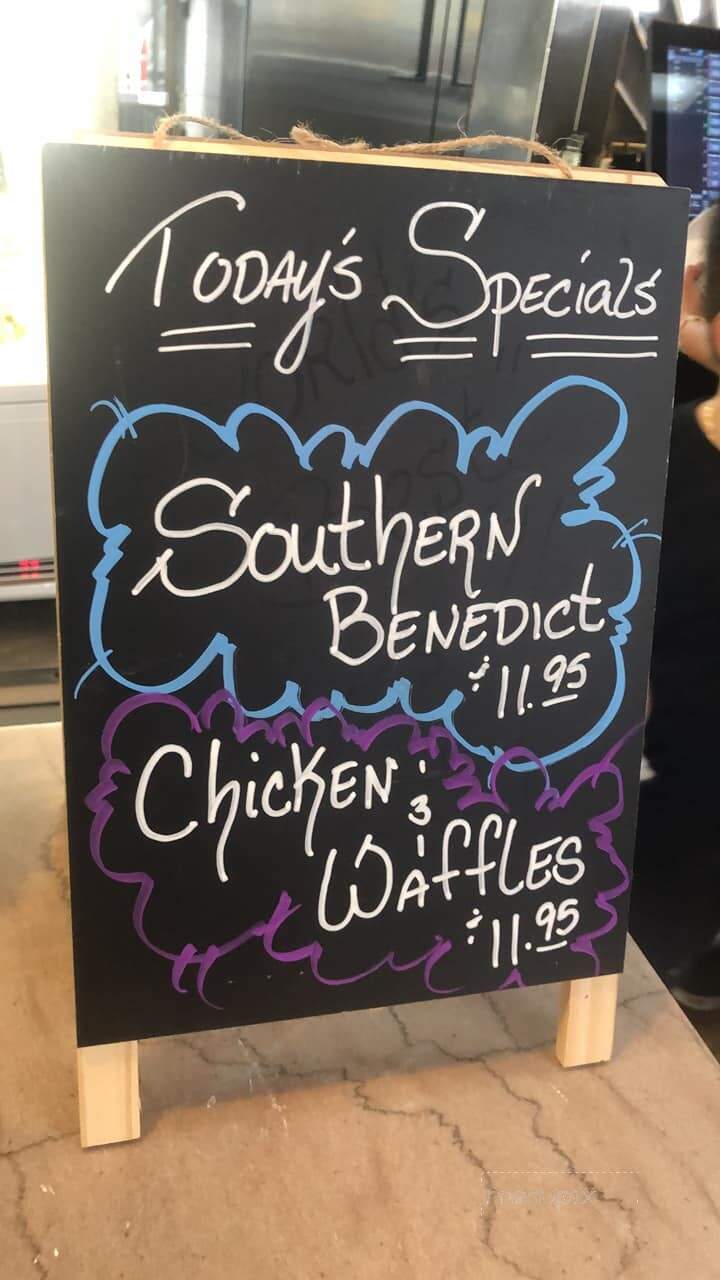 Today's Specials
Southern
Benedict
$11.95
Chicken &
Waffles
$11.95